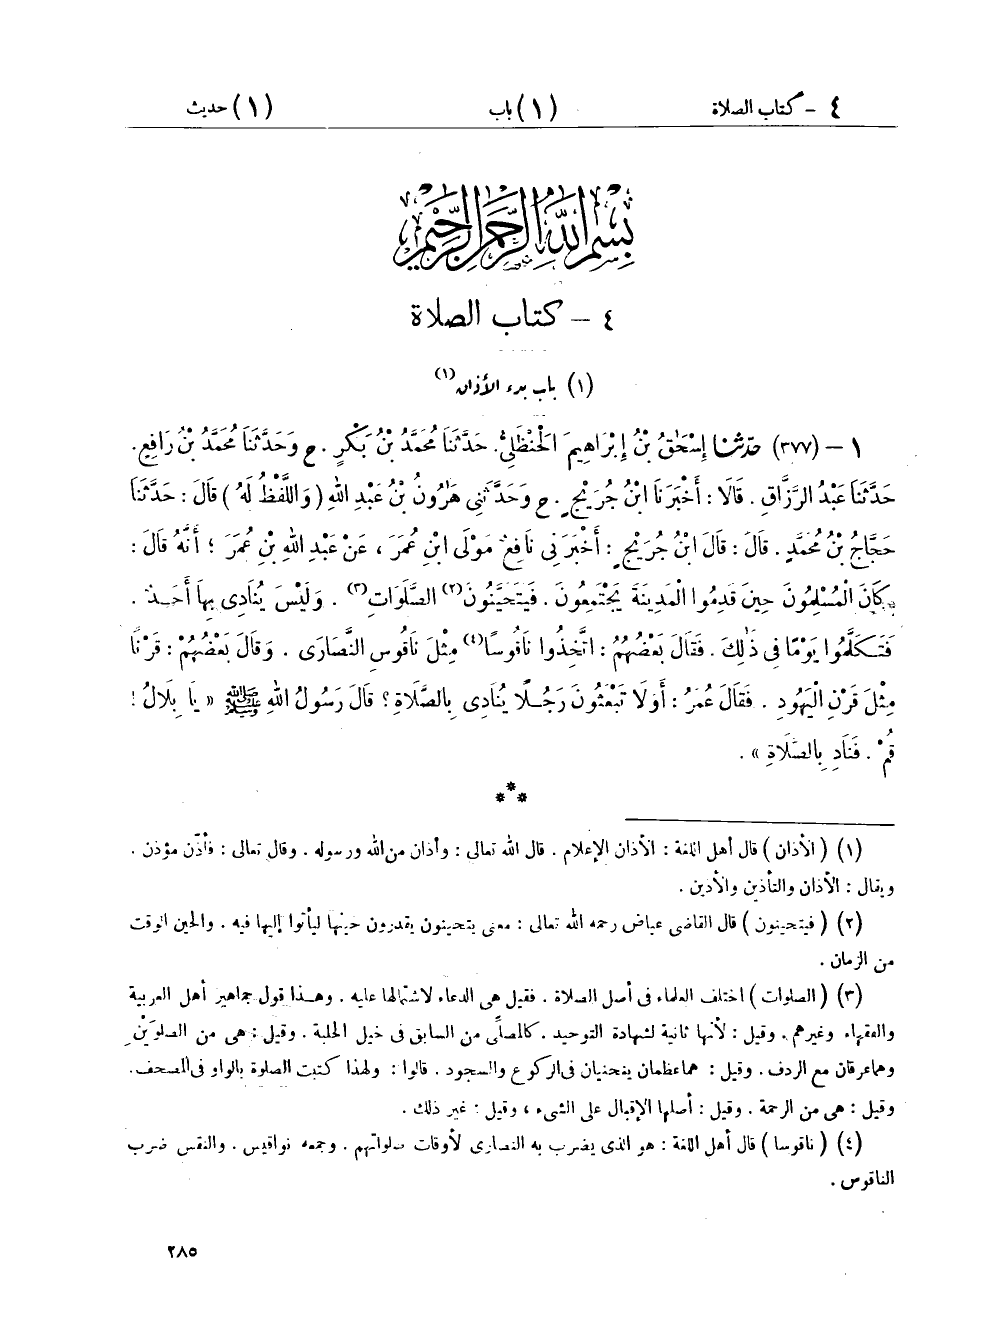 ٤ – كتاب الصلاة (١) باب (١) حديث
بسم الله الرحمن الرحيم
٤ – كتاب الصلاة
(١) باب بدء الأذان(١)
١ – (٣٧٧) حَدَّثَنَا إِسْحَٰقُ بْنُ إِبْرَاهِيمَ الْحَنْظَلِيُّ. حَدَّثَنَا مُحَمَّدُ بْنُ بَكْرٍ. ح وَحَدَّثَنَا مُحَمَّدُ بْنُ رَافِعٍ.
حَدَّثَنَا عَبْدُ الرَّزَّاقِ. قَالَا: أَخْبَرَنَا ابْنُ جُرَيْجٍ. ح وَحَدَّثَنِي هَٰرُونُ بْنُ عَبْدِ اللهِ (وَاللَّفْظُ لَهُ) قَالَ: حَدَّثَنَا
حَجَّاجُ بْنُ مُحَمَّدٍ. قَالَ: قَالَ ابْنُ جُرَيْجٍ: أَخْبَرَنِي نَافِعٌ مَوْلَى ابْنِ عُمَرَ، عَنْ عَبْدِ اللهِ بْنِ عُمَرَ؛ أَنَّهُ قَالَ:
كَانَ الْمُسْلِمُونَ حِينَ قَدِمُوا الْمَدِينَةَ يَجْتَمِعُونَ. فَيَتَحَيَّنُونَ(٢) الصَّلَوَاتِ(٣). وَلَيْسَ يُنَادِي بِهَا أَحَدٌ.
فَتَكَلَّمُوا يَوْمًا فِي ذَٰلِكَ. فَقَالَ بَعْضُهُمْ: اتَّخِذُوا نَاقُوسًا(٤) مِثْلَ نَاقُوسِ النَّصَارَى. وَقَالَ بَعْضُهُمْ: قَرْنًا
مِثْلَ قَرْنِ الْيَهُودِ. فَقَالَ عُمَرُ: أَوَلَا تَبْعَثُونَ رَجُلًا يُنَادِي بِالصَّلَاةِ؟ قَالَ رَسُولُ اللهِ ﷺ «يَا بِلَالُ!
قُمْ. فَنَادِ بِالصَّلَاةِ».
(١) (الأذان) قال أهل اللغة: الأذان الإعلام. قال الله تعالى: وأذان من الله ورسوله. وقال تعالى: فأذّن مؤذن.
ويقال: الأذان والتأذين والأذين.
(٢) (فيتحينون) قال القاضى عياض رحمه الله تعالى: معنى يتحينون يقدرون حينها ليأتوا إليها فيه. والحين الوقت
من الزمان.
(٣) (الصلوات) اختلف العلماء فى أصل الصلاة. فقيل هى الدعاء لاشتمالها عليه. وهذا قول جماهير أهل العربية
والفقهاء وغيرهم. وقيل: لأنها ثانية لشهادة التوحيد. كالمصلّى من السابق فى خيل الحلبة. وقيل: هى من الصلوَيْنِ
وهما عرقان مع الردف. وقيل: هما عظمان ينحنيان فى الركوع والسجود. قالوا: ولهذا كتبت الصلوة بالواو فى المصحف.
وقيل: هى من الرحمة. وقيل: أصلها الإقبال على الشىء، وقيل: غير ذلك.
(٤) (ناقوسا) قال أهل اللغة: هو الذى يضرب به النصارى لأوقات صلواتهم. وجمعه نواقيس. والنقس ضرب
الناقوس.
٢٨٥